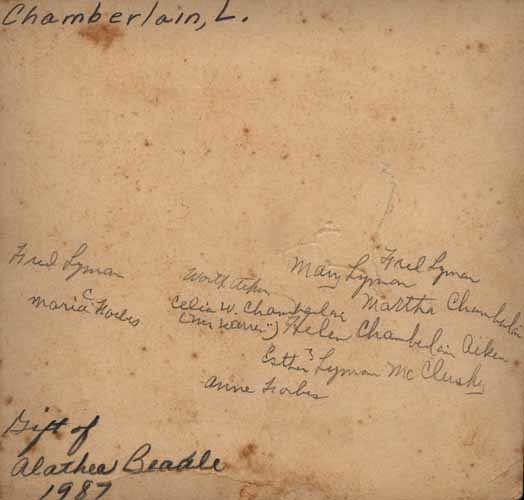 Chamberlain, L.
Fred Lyman
Mary Lyman
Fred Lyman
Worth Aiken
Martha Chamberlain
Maria C Forbes
Celia W. Chamberlain
Helen Chamberlain Aiken
Esther Lyman McClusky
Anne Forbes
Gift of
Alathea Beadle
1987